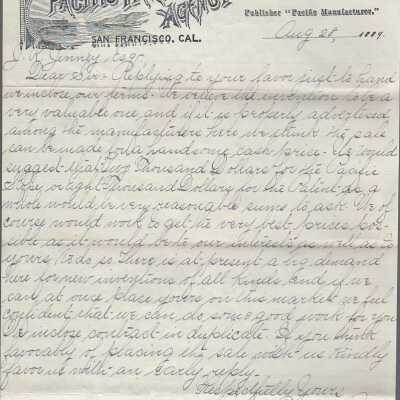 PACIFIC
AGENCY
SAN FRANCISCO, CAL.
Publisher "Pacific Manufacturer."
Aug 28, 1889.
J. R. Finney, Esq.
Dear Sir:- Replying to your favor just to hand
we inclose our terms. We believe the invention to be a
very valuable one, and if it is properly advertised,
among the manufacturers here we think the sale
can be made for a handsome cash price. We would
suggest that Two Thousand Dollars for the Pacific
Slope or Eight Thousand Dollars for the Patent as a
whole would be very reasonable sums to ask. We of
course would work to get the very best prices pos-
sible as it would be to our interests as well as to
yours to do so. There is at present a big demand
here for new inventions of all kinds and if we
can at once place yours on this market we feel
confident that we can do some good work for you
We inclose contract in duplicate. If you think
favorably of placing the sale with us kindly
favor us with an early reply.
Respectfully Yours